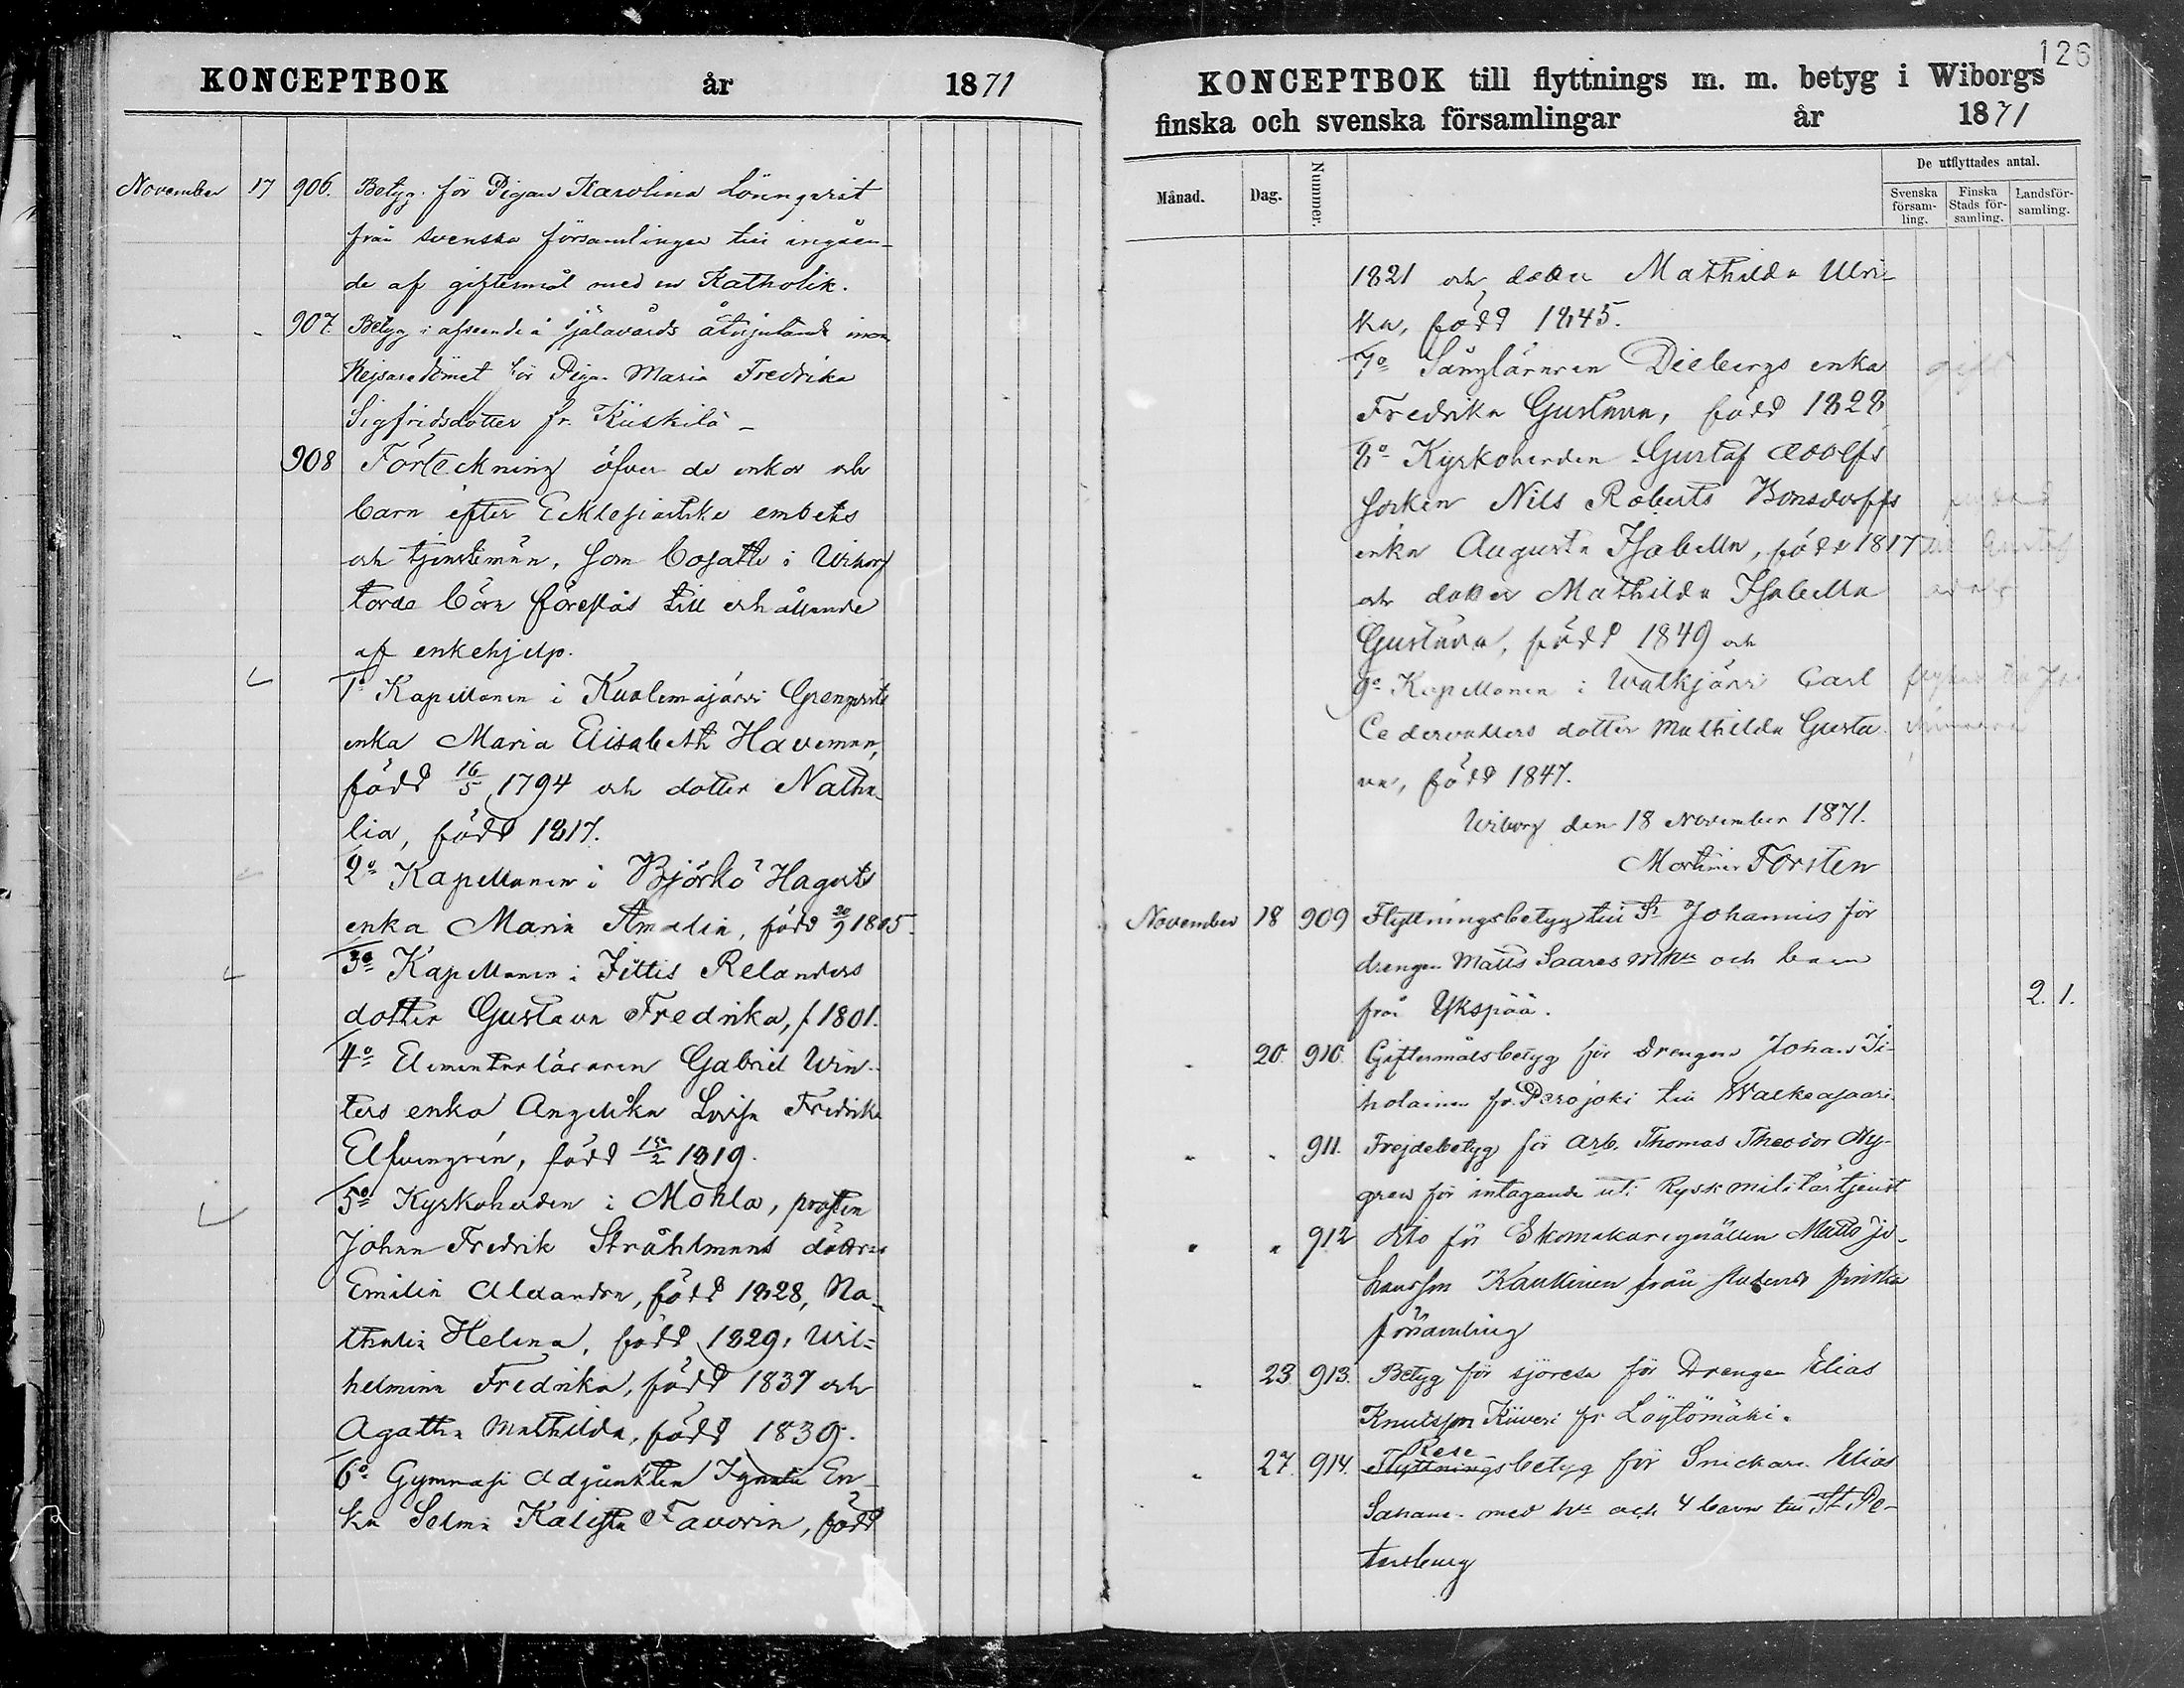 KONCEPTBOK år 1871
November 17 906. Betyg för Pigan Karolina Lönnqvist
från svenska församlingen till ingåen-
de af giftermål med en Katholik.
" " 907. Betyg i afseende å själavårds åtnjutande inom
Kejsaredömet för Pigan Maria Fredrika
Sigfridsdotter fr. Kiiskilä -
908 Förteckning öfver de enkor och
barn efter Ecklesiastike embets
och tjenstemän, som bosatte i Wiborg
torde böra föreslås till erhållande
af enkehjelp.
1o Kapellanen i Kuolemajärvi Grenqvists
enka Maria Elisabeth Haveman,
född 16/5 1794 och dotter Natha-
lia, född 1817.
2o Kapellanen i Björkö Hagerts
enka Maria Amalia, född 20/9 1805.
3o Kapellanen i Jittis Relanders
dotter Gustava Fredrika, f. 1801.
4o Elementarläraren Gabriel Win-
ters enka Angelika Lovisa Fredrika
Elfvengrén, född 15/2 1819.
5o Kyrkoherden i Mohla, prosten
Johan Fredrik Stråhlmans döttrar
Emilia Alexandra, född 1828, Na-
thalia Helena, född 1829, Wil-
helmina Fredrika, född 1837 och
Agatha Mathilda, född 1839.
6o Gymnasi Adjunkten Ignatii En-
ka Selma Kalista Favorin, född
126
KONCEPTBOK till flyttnings m. m. betyg i Wiborgs
finska och svenska församlingar år 1871
Månad. Dag. Nummer. De utflyttades antal.
Svenska församling. Finska Stads församling. Landsförsamling.
1821 och dotter Mathilda Ulri-
ka, född 1845.
7o Sångläraren Diebergs enka
Fredrika Gustava, född 1828 gift
8o Kyrkoherden Gustaf Adolfs
socken Nils Roberts Bonsdorffs
enka Augusta Isabella, född 1817 till Gustaf
och dotter Mathilda Isabella adolf
Gustava, född 1849 och
9o Kapellanen i Walkjärvi Carl
Cedervallers dotter Mathilda Gusta
va, född 1847.
Wiborg den 18 November 1871.
Mortimer Forsten
November 18 909 Flyttningsbetyg till St Johannis för
drengen Matts Saares m hu och barn
från Ykspää. 2. 1.
" 20. 910. Giftermålsbetyg för drengen Johan Ti-
iholainen fr. Perojoki till Walkeasaari.
" " 911. Frejdebetyg för Arb. Thomas Theodor Ny-
gren för intagande uti Rysk militärtjenst
" " 912 dito för Skomakaregesällen Matts Jo-
hansson Kaukinen från stadens finska
församling
" 23. 913. Betyg för sjöresa för Drengen Elias
Knutsson Kiiveri fr. Löytömäki.
" 27. 914. Flyttnings Resebetyg för Snickare Elias
med hu och 4 barn till St. Pe-
tersburg